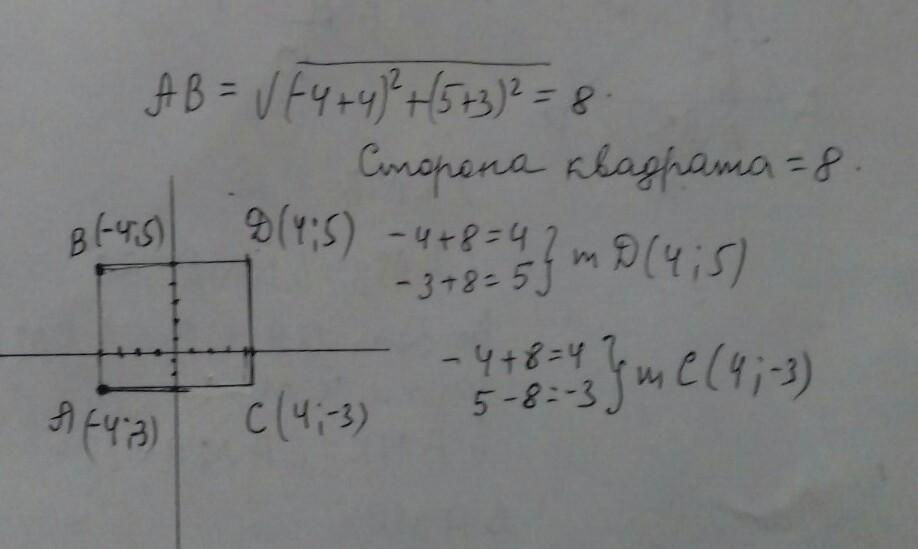 AB = √(-4+4)²+(5+3)² = 8.
Сторона квадрата = 8.
B(-4;5)
D(4;5)
-4+8=4
-3+8=5 } т D(4;5)
-4+8=4
5-8=-3 } т C(4;-3)
A(-4;3)
C(4;-3)